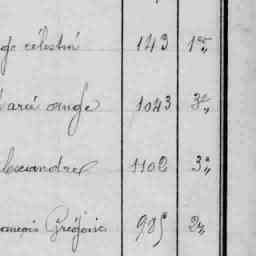 ge célestin 143 1er
arie ange 1043 3e
lexandre 1102 3e
ançois Grégoire 905 2e